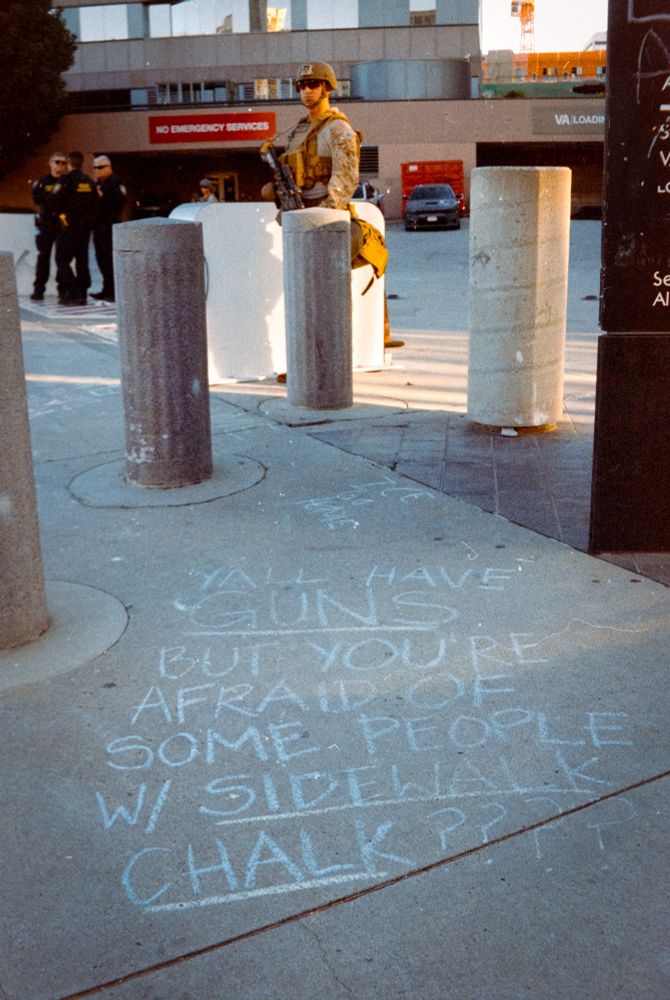 NO EMERGENCY SERVICES
VA LOADIN
Se
Al
ICE
GO
HOME
YALL HAVE
GUNS
BUT YOU'RE
AFRAID OF
SOME PEOPLE
W/ SIDEWALK
CHALK????